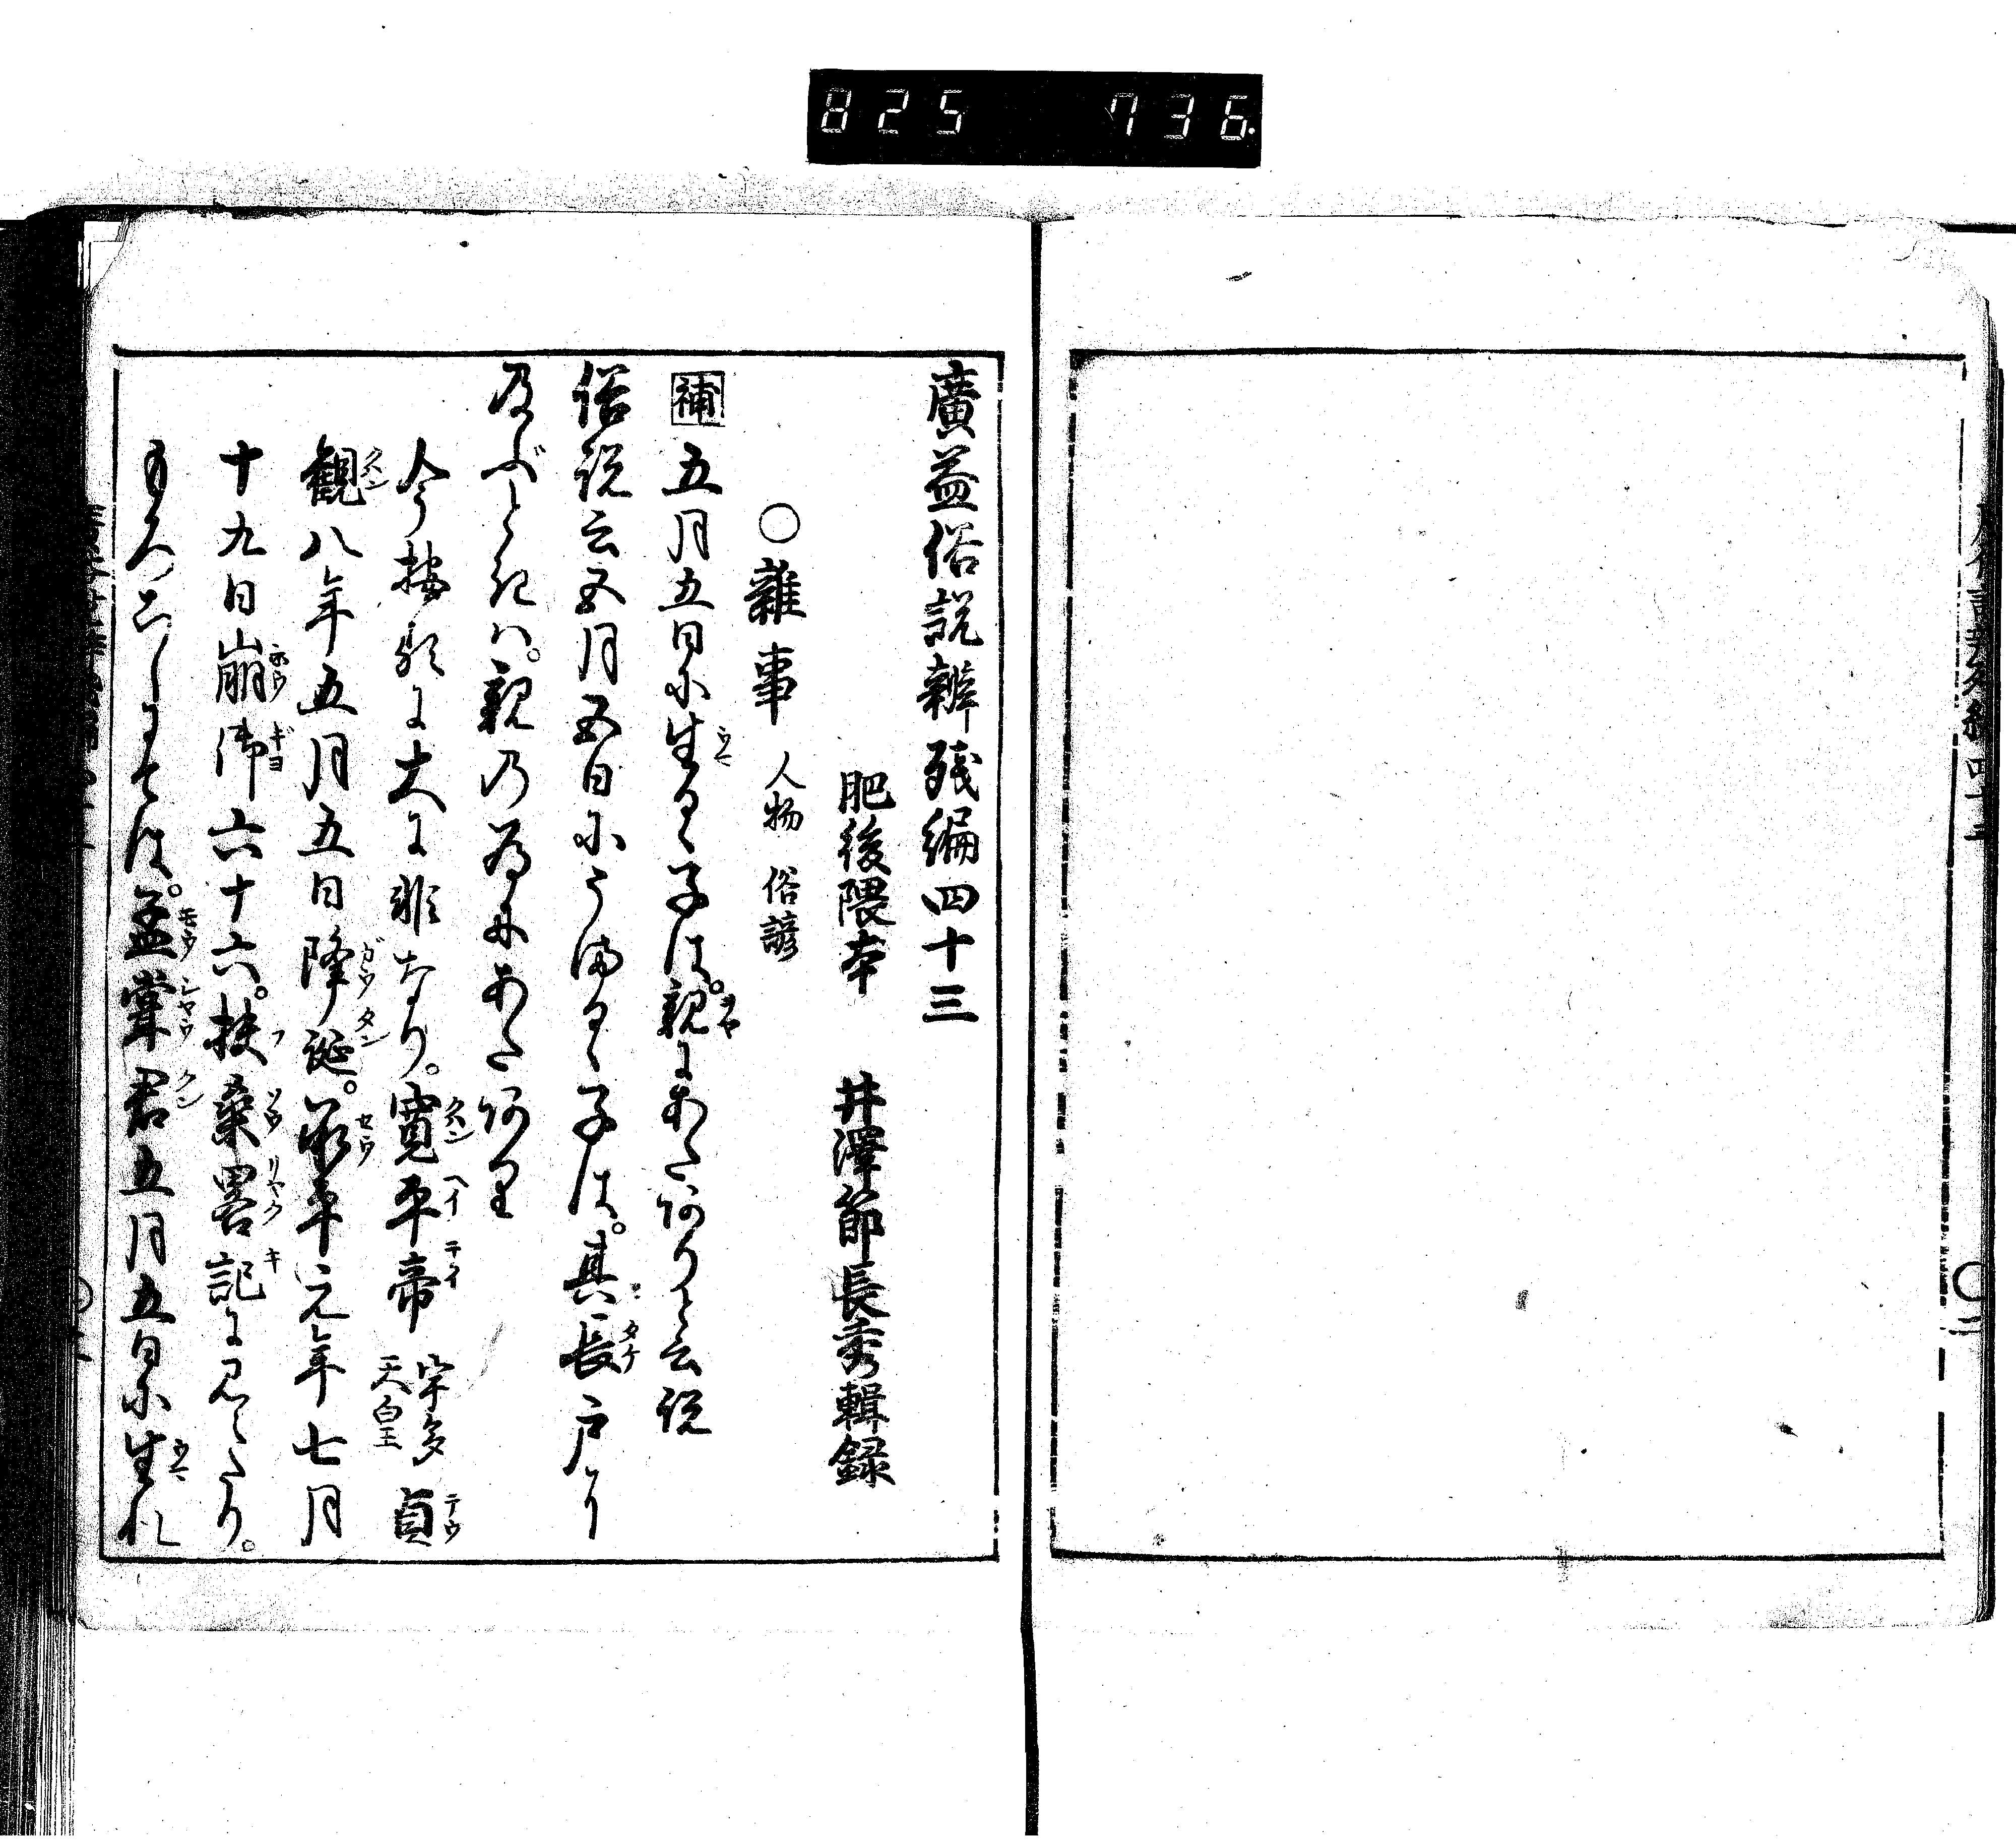 825 736
廣益俗説辨殘編四十三
肥後隈本 井澤節長秀輯録
○雜事 人物 俗諺
補 五月五日に生るゝ子は。親にあたありと云説
俗説云五月五日にうまるゝ子は。其長戸に
及ぶときハ。親の為にあたあり
今按るに大に非なり。寛平帝 宇多天皇 貞
観八年五月五日降誕。承平元年七月
十九日崩御六十六。扶桑畧記に見えたり。
もろこしにては。孟嘗君五月五日に生れ